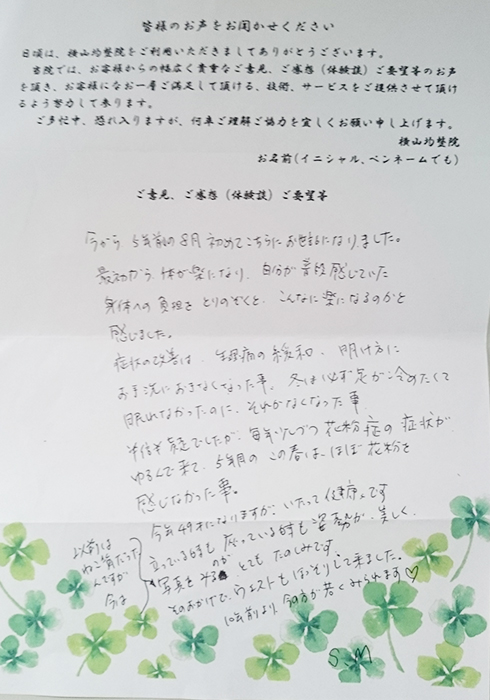 皆様のお声をお聞かせください
日頃は、横山均整院をご利用いただきましてありがとうございます。
当院では、お客様からの幅広く貴重なご意見、ご感想（体験談）ご要望等のお声
を頂き、お客様になお一層ご満足して頂ける、技術、サービスをご提供させて頂け
るよう努力して参ります。
ご多忙中、恐れ入りますが、何卒ご理解ご協力を宜しくお願い申し上げます。
横山均整院
お名前（イニシャル、ペンネームでも）
ご意見、ご感想（体験談）ご要望等
今から 5年前の8月 初めてこちらにお世話になりました。
最初から 体が楽になり、自分が普段感じていた
身体への負担を とりのぞくと、こんなに楽になるのかと
感じました。
症状の改善は、生理痛の緩和、明け方に
お手洗におきなくなった事、冬は必ず足が冷めたくて
眠れなかったのに、それがなくなった事
半信半疑でしたが、毎年少しづつ花粉症の症状が
ゆるんで来て、5年目の この春は、ほぼ花粉を
感じなかった事。
今年49才になりますが、いたって健康人です
立っている時も 座っている時も 姿勢が、美しく、
以前は
ねこ背だった
んですが
今は
写真をみるのが とても たのしみです
そのおかげで、ウェストもほっそりして来ました。
10年前より 今の方が若くみられます♡
S.M